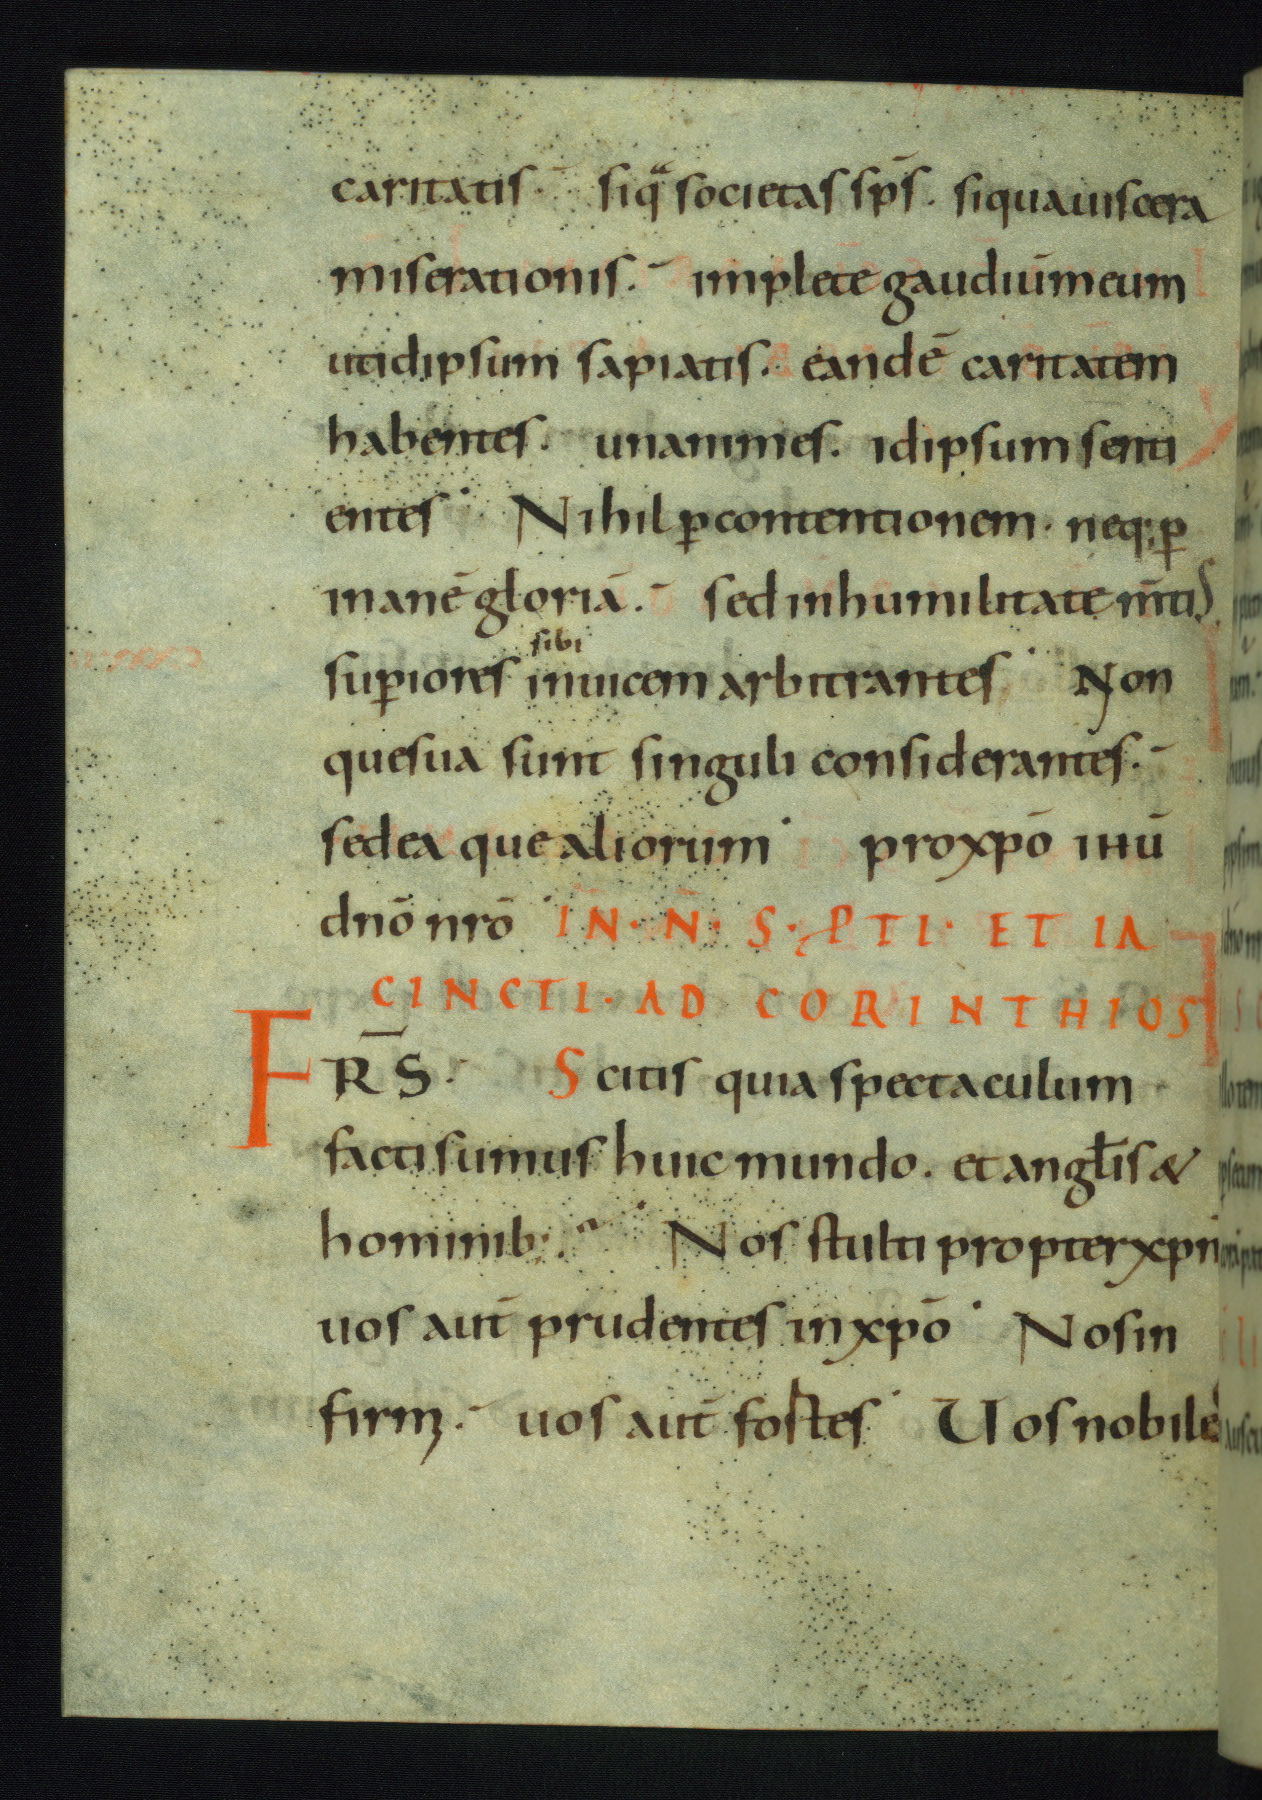 caritatis. siq̈ societas sp̄s. siqua uiscera
miserationis. implete gaudiū meum
ut idipsum sapiatis. eandē caritatem
habentes. unanimes. idipsum senti
entes Nihil ꝑ contentionem. neq; ꝑ
inanē gloriā. sed in humilitate m̄tis
sibi
suꝑiores inuicem arbitrantes Non
que sua sunt singuli considerantes.
sed ea que aliorum pro xpō ihū
dnō nrō IN̄. N̄. S. PTI. ET IA
CINCTI. AD CORINTHIOS
FR̄S. Scitis quia spectaculum
facti sumus huic mundo. et angłis &
hominib;. Nos stulti propter xpm
uos aut̄ prudentes in xpō Nos in
firmi. uos aut̄ fortes Uos nobiles